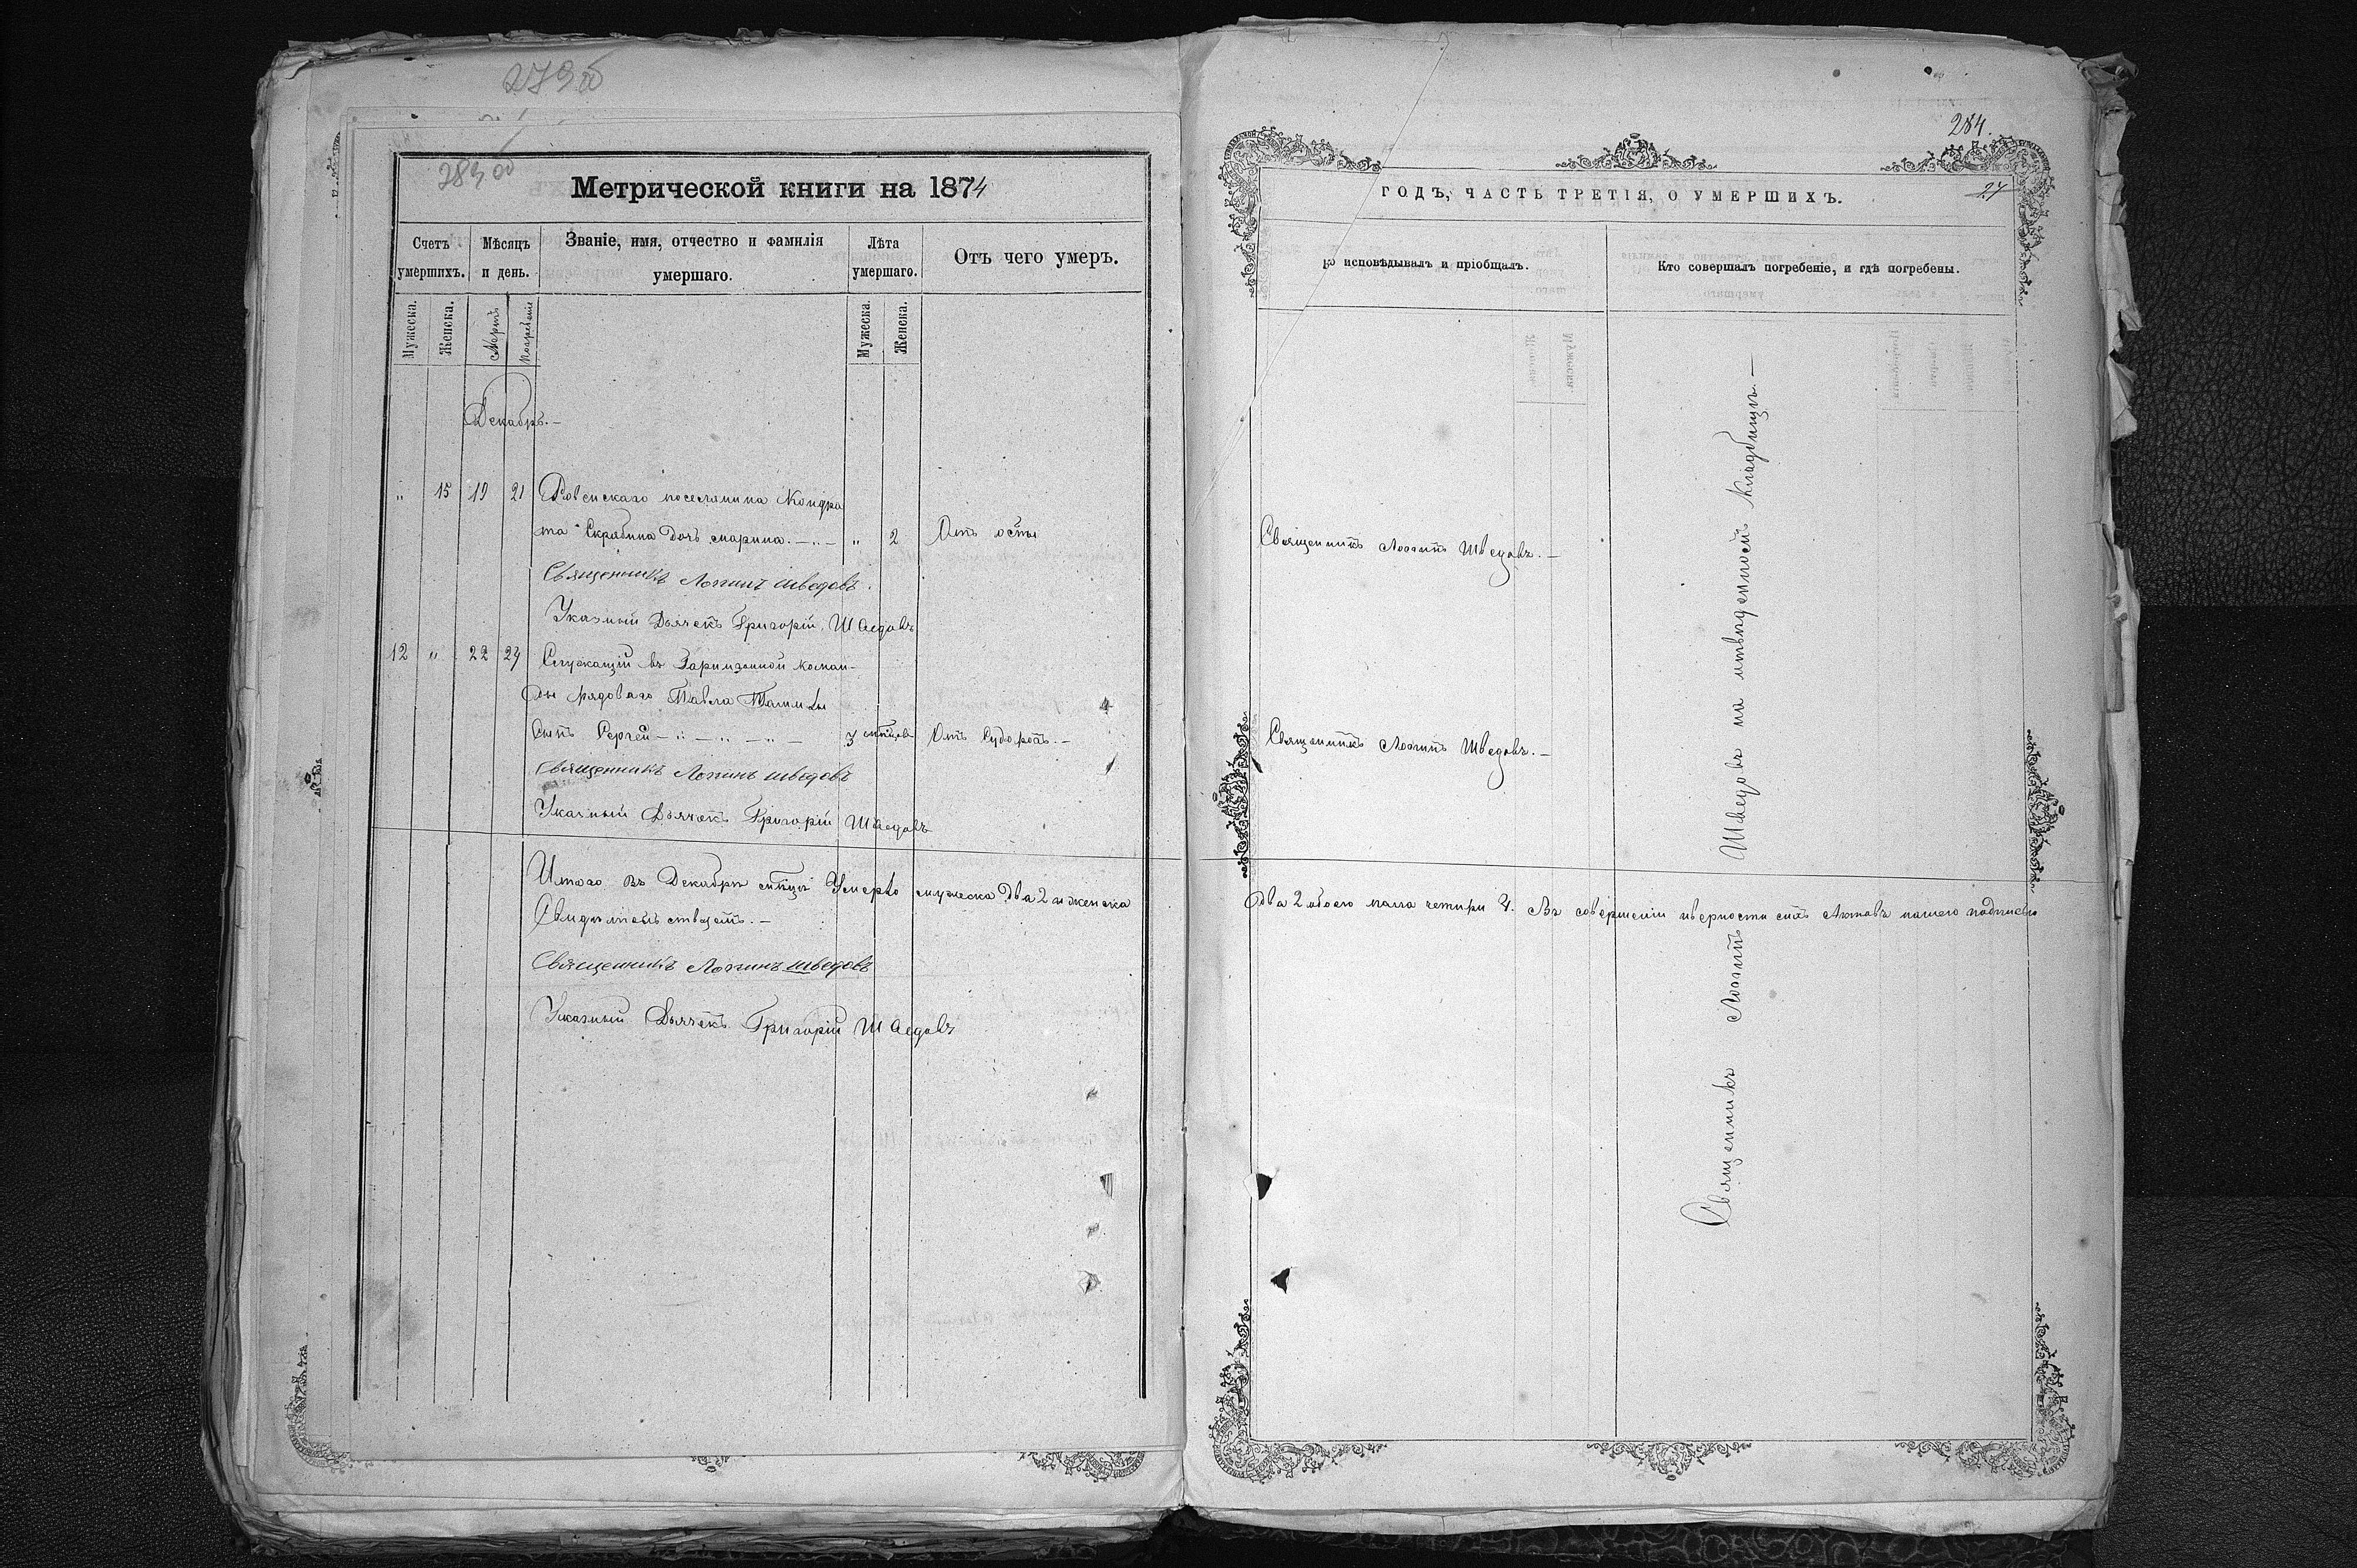 279об
283об
Метрической книги на 1874
Счетъ умершихъ.
Мѣсяцъ и день.
Званіе, имя, отчество и фамилія умершаго.
Лѣта умершаго.
Отъ чего умеръ.
Мужеска.
Женска.
Смерть
Погребеніе
Мужеска.
Женска.
Декабрь.—
„ 15 19 21 Ровенскаго поселянина Кондра
та Скрабина Дочь Марина. —„— „ 2 Отъ оспы
Священникъ Логинъ Шведовъ.
Указный Дьячекъ Григорій Шведовъ
12 „ 22 24 Служащій въ коман-
ды рядоваго Павла
Сынъ Сергей —„—„—„— 3 мѣсяцовъ Отъ Судорогъ.—
Священникъ Логинъ Шведовъ
Указный Дьячекъ Григорій Шведовъ
Итого въ Декабрѣ мѣсяцѣ Умерло мужеска Два 2 и женска
Свидѣтельствуемъ.—
Священникъ Логинъ Шведовъ
Указный Дьячекъ Григорій Шведовъ
284.
24
ГОДЪ, ЧАСТЬ ТРЕТІЯ, О УМЕРШИХЪ.
о исповѣдывалъ и пріобщалъ.
Кто совершалъ погребеніе, и гдѣ погребены.
Священникъ Логинъ Шведовъ.—
Священникъ Логинъ Шведовъ.—
Два 2 обоего пола четыри 4. Въ совершеніи и верности сихъ Актовъ нашею подписью
Священникъ Логинъ Шведовъ на Кладбищѣ.—